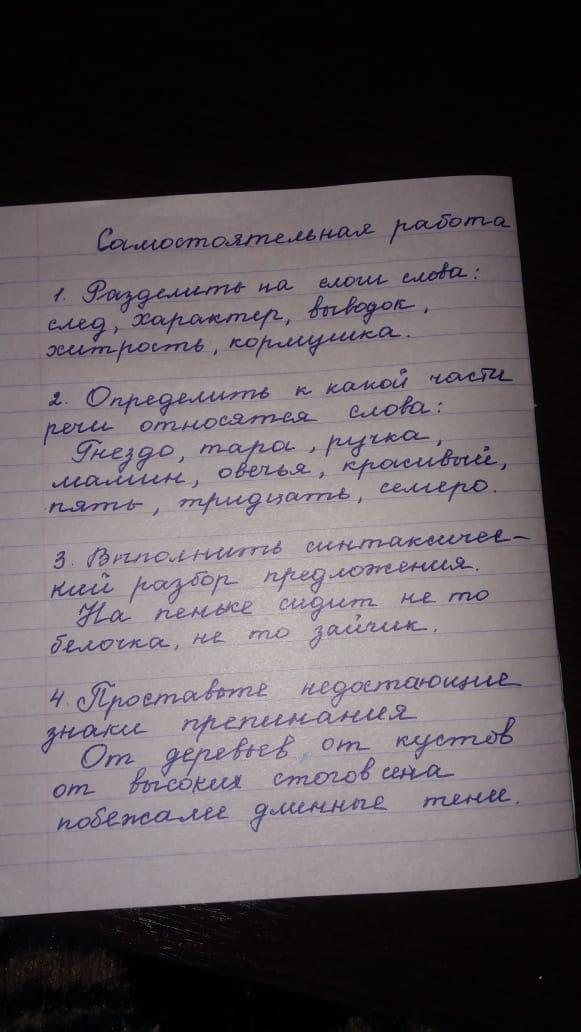 Самостоятельная работа
1. Разделить на слоги слова:
след, характер, выводок,
хитрость, кормушка.
2. Определить к какой части
речи относятся слова:
Гнездо, тара, ручка,
мамин, овечья, красивый,
пять, тридцать, семеро.
3. Выполнить синтаксичес-
кий разбор предложения.
На пеньке сидит не то
белочка, не то зайчик.
4. Проставьте недостающие
знаки препинания
От деревьев от кустов
от высоких стогов сена
побежали длинные тени.